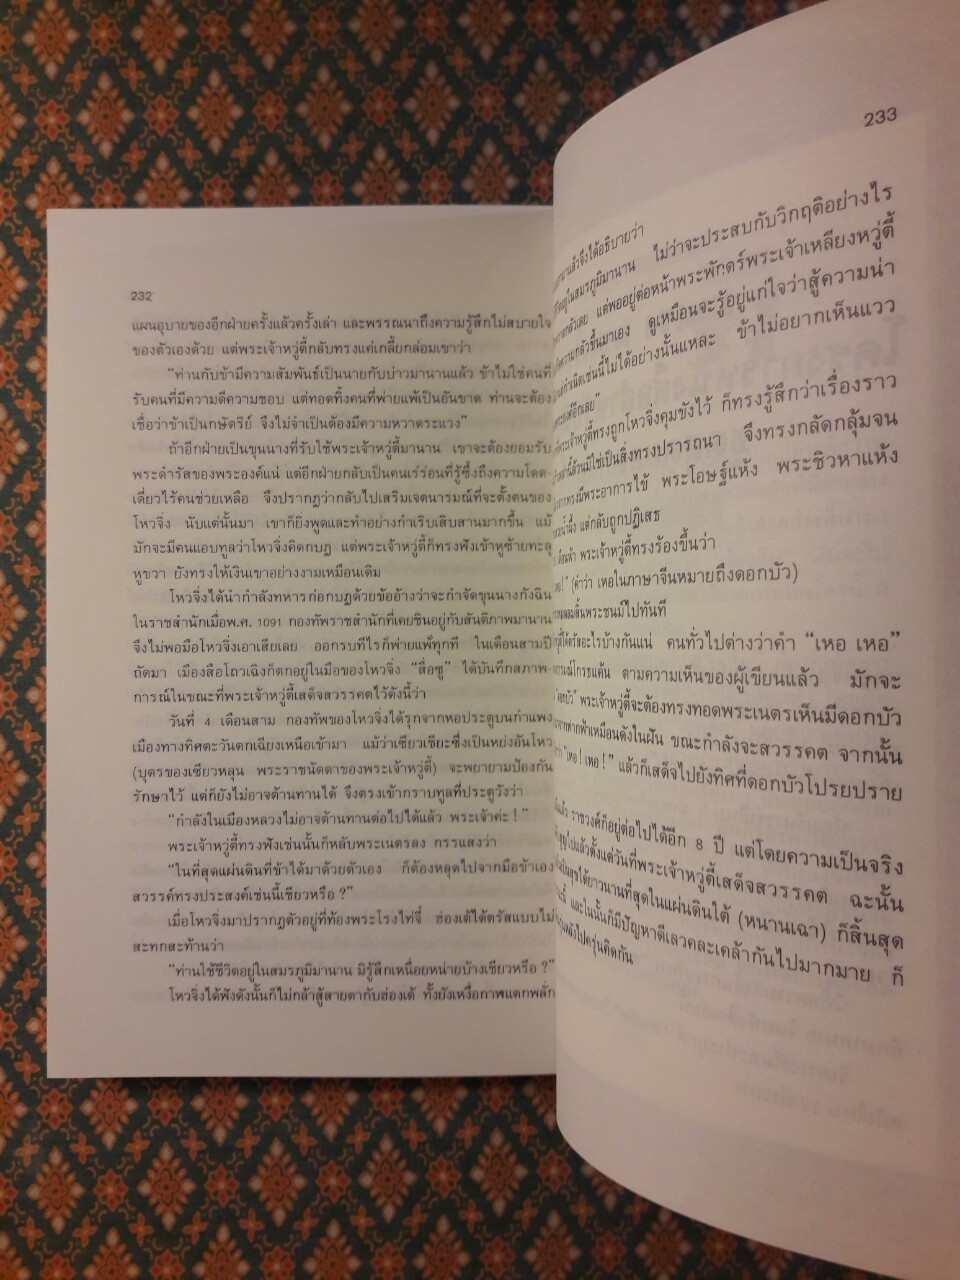 232
แผนอุบายของอีกฝ่ายครั้งแล้วครั้งเล่า และพรรณนาถึงความรู้สึกไม่สบายใจ
ของตัวเองด้วย แต่พระเจ้าหวู่ตี้กลับทรงแค่เกลี้ยกล่อมเขาว่า
“ท่านกับข้ามีความสัมพันธ์เป็นนายกับบ่าวมานานแล้ว ข้าไม่ใช่คนที่
รับคนที่มีความดีความชอบ แต่ทอดทิ้งคนที่พ่ายแพ้เป็นอันขาด ท่านจะต้อง
เชื่อว่าข้าเป็นกษัตริย์ จึงไม่จำเป็นต้องมีความหวาดระแวง”
ถ้าอีกฝ่ายเป็นขุนนางที่รับใช้พระเจ้าหวู่ตี้มานาน เขาจะต้องยอมรับ
พระดำรัสของพระองค์แน่ แต่อีกฝ่ายกลับเป็นคนเร่ร่อนที่รู้ซึ้งถึงความโดด-
เดี่ยวไร้คนช่วยเหลือ จึงปรากฏว่ากลับไปเสริมเจตนารมณ์ที่จะตั้งตนของ
โหวจิ่ง นับแต่นั้นมา เขาก็ยิ่งพูดและทำอย่างกำเริบเสิบสานมากขึ้น แม้
มักจะมีคนแอบทูลว่าโหวจิ่งคิดกบฏ แต่พระเจ้าหวู่ตี้ก็ทรงฟังเข้าหูซ้ายทะลุ
หูขวา ยังทรงให้เงินเขาอย่างงามเหมือนเดิม
โหวจิ่งได้นำกำลังทหารก่อกบฏด้วยข้ออ้างว่าจะกำจัดขุนนางกังฉิน
ในราชสำนักเมื่อพ.ศ. 1091 กองทัพราชสำนักที่เคยชินอยู่กับสันติภาพมานาน
จึงไม่พอมือโหวจิ่งเอาเสียเลย ออกรบทีไรก็พ่ายแพ้ทุกที ในเดือนสามปี
ถัดมา เมืองสือโถวเฉิงก็ตกอยู่ในมือของโหวจิ่ง “สื่อซู” ได้บันทึกสภาพ-
การณ์ในขณะที่พระเจ้าหวู่ตี้เสด็จสวรรคตไว้ดังนี้ว่า
วันที่ 4 เดือนสาม กองทัพของโหวจิ่งได้รุกจากหอประตูบนกำแพง
เมืองทางทิศตะวันตกเฉียงเหนือเข้ามา แม้ว่าเซียวเชียะซึ่งเป็นหย่งอันโหว
(บุตรของเซียวหลุน พระราชนัดดาของพระเจ้าหวู่ตี้) จะพยายามป้องกัน
รักษาไว้ แต่ก็ยังไม่อาจต้านทานได้ จึงตรงเข้ากราบทูลที่ประตูวังว่า
“กำลังในเมืองหลวงไม่อาจต้านทานต่อไปได้แล้ว พระเจ้าค่ะ !”
พระเจ้าหวู่ตี้ทรงฟังเช่นนั้นก็หลับพระเนตรลง กรรแสงว่า
“ในที่สุดแผ่นดินที่ข้าได้มาด้วยตัวเอง ก็ต้องหลุดไปจากมือข้าเอง
สวรรค์ทรงประสงค์เช่นนี้เชียวหรือ ?”
เมื่อโหวจิ่งมาปรากฏตัวอยู่ที่ท้องพระโรงไท่จี๋ ฮ่องเต้ได้ตรัสแบบไม่
สะทกสะท้านว่า
“ท่านใช้ชีวิตอยู่ในสมรภูมิมานาน มิรู้สึกเหนื่อยหน่ายบ้างเชียวหรือ ?”
โหวจิ่งได้ฟังดังนั้นก็ไม่กล้าสู้สายตากับฮ่องเต้ ทั้งยังเหงื่อกาฬแตกพลั่ก
233
มาแล้วจึงได้อธิบายว่า
อยู่ในสมรภูมิมานาน ไม่ว่าจะประสบกับวิกฤติอย่างไร
กลัวเลย แต่พออยู่ต่อหน้าพระพักตร์พระเจ้าเหลียงหวู่ตี้
ความกลัวขึ้นมาเอง ดูเหมือนจะรู้อยู่แก่ใจว่าสู้ความน่า
กำเนิดเช่นนี้ไม่ได้อย่างนั้นแหละ ข้าไม่อยากเห็นแวว
อีกเลย”
พระเจ้าหวู่ตี้ทรงถูกโหวจิ่งคุมขังไว้ ก็ทรงรู้สึกว่าเรื่องราว
ล้วนมิใช่เป็นสิ่งทรงปรารถนา จึงทรงกลัดกลุ้มจน
ทรงมีพระอาการไข้ พระโอษฐ์แห้ง พระชิวหาแห้ง
น้ำผึ้ง แต่กลับถูกปฏิเสธ
พระเจ้าหวู่ตี้ทรงร้องขึ้นว่า
!” (คำว่า เหอในภาษาจีนหมายถึงดอกบัว)
สิ้นพระชนม์ไปทันที
ได้ตรัสอะไรบ้างกันแน่ คนทั่วไปต่างว่าคำ “เหอ เหอ”
โกรธแค้น ตามความเห็นของผู้เขียนแล้ว มักจะ
พระเจ้าหวู่ตี้จะต้องทรงทอดพระเนตรเห็นมีดอกบัว
ฟากฟ้าเหมือนดังในฝัน ขณะกำลังจะสวรรคต จากนั้น
“เหอ ! เหอ !” แล้วก็เสด็จไปยังทิศที่ดอกบัวโปรยปราย
แล้ว ราชวงศ์ก็อยู่ต่อไปได้อีก 8 ปี แต่โดยความเป็นจริง
ไปแล้วตั้งแต่วันที่พระเจ้าหวู่ตี้เสด็จสวรรคต ฉะนั้น
ได้ยาวนานที่สุดในแผ่นดินใต้ (หนานเฉา) ก็สิ้นสุด
และในนั้นก็มีปัญหาดีเลวคละเคล้ากันไปมากมาย ก็
ไปครุ่นคิดกัน